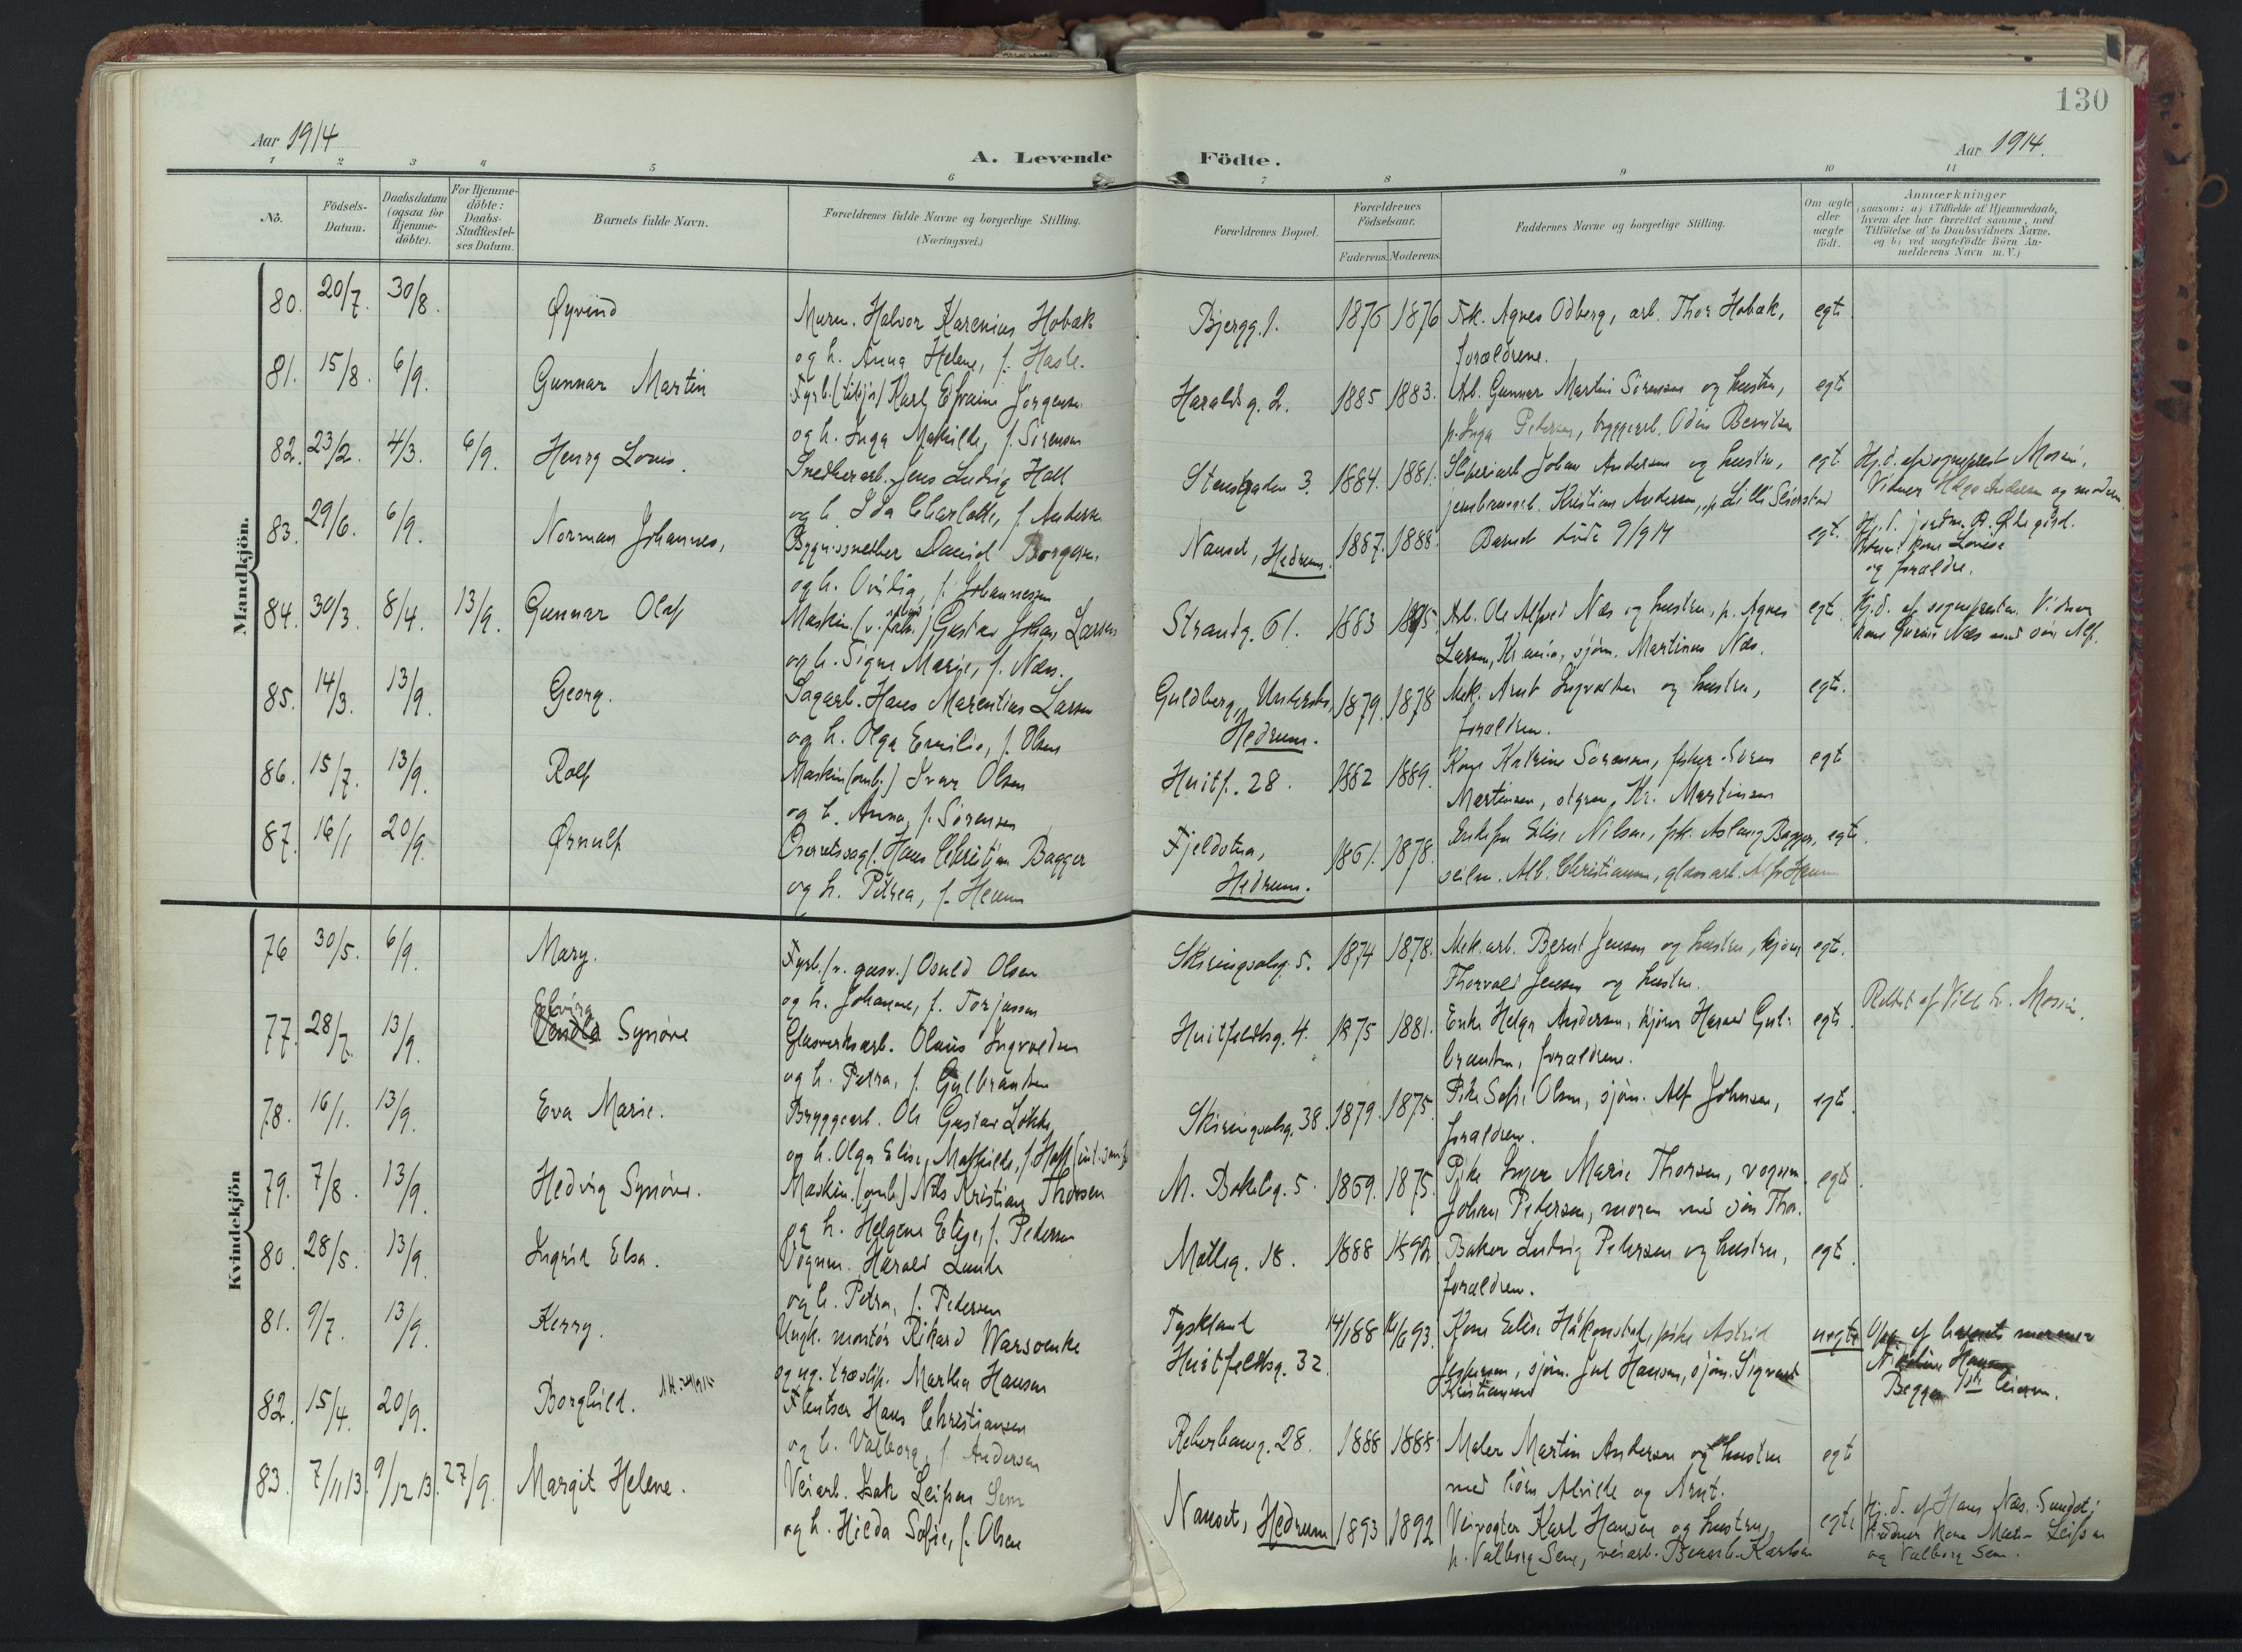 130
Aar 1914
A. Levende Födte.
Aar 1914.
1 2 3 4 5 6 7 8 9 10 11
No.
Födsels-
Datum.
Daabsdatum
(ogsaa for
Hjemme-
döbte).
For Hjemme-
döbte:
Daabs-
Stadfæstel-
ses Datum.
Barnets fulde Navn.
Forældrenes fulde Navne og borgerlige Stilling.
(Næringsvei.)
Forældrenes Bopæl.
Forældrenes
Födselsaar.
Faderens. Moderens.
Faddernes Navne og borgerlige Stilling.
Om ægte
eller
uægte
født.
Anmærkninger
(saasom: a) i Tilfælde af Hjemmedaab,
hvem der har forrettet samme, med
Tilföielse af to Daabsvidners Navne.
og b) ved uægtefödte Börn An-
melderens Navn m. V.)
Mandkjön.
80. 20/7. 30/8. Øyvind Murm. Halvor Karenius Hobæk Bjergg. 1. 1876 1876 Frk. Agnes Odberg, arb. Thor Hobæk, egt
og h. Anna Helene, f. Hasle. forældrene.
81. 15/8. 6/9. Gunnar Martin Fyrb. Karl Efraim Jörgensen Haraldsg. 2. 1885 1883. Arb. Gunnar Martin Sörensen og hustru, egt
og h. Inga Mathilde, f. Sörensen p. Inga Pedersen, byggearb. Odin Berntsen
82. 23/2. 4/3. 6/9. Henry Louis. Snedkerarb. Jens Ludvig Hall Stensgaden 3. 1884. 1881. Sliperiarb. Johan Andersen og hustru, egt Hj.d. af sogneprest
og h. Ida Charlotte, f. Andersen Kristian Andersen, p. Lilli Vidner Helga Andersen og moderen
83. 29/6. 6/9. Norman Johannes, Bygnissnedker David Borgesen Nanset, Hedrum. 1887. 1888. Barnet döde 9/9 14 egt. Hj.d. jordm.
og h. Ovidia, f. Johannessen kone Lovise
og forældre.
84. 30/3. 8/4. 13/9. Gunnar Olaf Maskin. Gustav Johan Larsen Strandg. 61. 1883 1885. Arb. Ole Alfred Næs og hustru, p. Agnes egt Hj.d. af sognepresten. Vidner
og h. Signe Marie, f. Næs. Larsen, Kr.ania, sjöm. Martinus Næs. kone Næs med sön Alf.
85. 14/3. 13/9. Georg. Sagarb. Hans Marentius Larsen Guldberg, Hedrum. 1879. 1878 Mek. Arnt Ingvaldsen og hustru, egt.
og h. Olga Emilie, f. Olsen forældrene.
86. 15/7. 13/9. Rolf Maskin(omb.) Ivar Olsen Huitf. 28. 1882 1889. Kone Katrine Sörensen, fisker Sören egt
og h. Anna, f. Sörensen Martinsen, Kr. Martinsen
87. 16/1 20/9. Ørnulf Hans Christian Bagger Hedrum. 1861. 1878. Enkefru Elise Nilsen, frk. Aslaug Bagger, egt.
og h. Petrea, f. Heum Alb. Christiansen, glasarb. Alf Heum
Kvindekjön
76 30/5. 6/9. Mary. Fyrb. Osvald Olsen Skiringsalsg. 5. 1874 1878. Mek.arb. Bernt Jensen og hustru, egt.
og h. Johanne, f. Torjussen Thorvald Jensen og hustru.
77. 28/7. 13/9. Elvira Synöve Glasverksarb. Olaus Ingvaldsen Huitfeldtsg. 4. 1875 1881. Enke Helga Andersen, egt.
og h. Petra, f. Gulbrandsen forældrene.
78. 16/1. 13/9. Eva Marie. Bryggearb. Ole Gustav Løkke Skiringsalsg. 38. 1879. 1875. Pike Sofie Olsen, sjöm. Alf Johnsen, egt.
og h. Olga Elise Mathilde, f. Hoff forældrene.
79. 7/8. 13/9. Hedvig Synöve. Maskin. (omb.) Nils Kristian Thorsen M. Bakkeg. 5. 1869. 1875. Pike Inger Marie Thorsen, vognm. egt.
og h. Helgene Elise, f. Pedersen Johan Pedersen, moren med sön Thor.
80. 28/5. 13/9. Ingrid Elsa. Vognm. Harald Lunde Mølleg. 18. 1888 1892. Baker Ludvig Petersen og hustru, egt.
og h. Petra, f. Pedersen forældrene.
81. 9/7. 13/9. Kerry. Ungk. montör Rikard Warsoenke Tyskland 14/1 88 93. Kone Elise Håkonstad, pike Astrid uegte Opg. af barnets mormor
og ug. Martha Hansen Huitfeldtsg. 32 Jespersen, sjöm. Jul Hansen, sjöm. Sigvart Kristiansen Nikoline Hansen
Begges 1ste leierm.
82. 15/4. 20/9. Borghild. Flentser Hans Christiansen Reberbaneg. 28. 1888 1888. Maler Martin Andersen og hustru egt
og h. Valborg, f. Andersen med börn Alvilde og Arnt.
83. 7/11 13. 9/12 13. 27/9. Margit Helene. Veiarb. Isak Leifsen Sem Nanset, Hedrum 1893 1892 Veivogter Karl Hansen og hustru, egt. Hj.d. af Hans Næs.
og h. Hilda Sofie, f. Olsen p. Valborg Sem, veiarb. Karlsen og Valborg Sem.